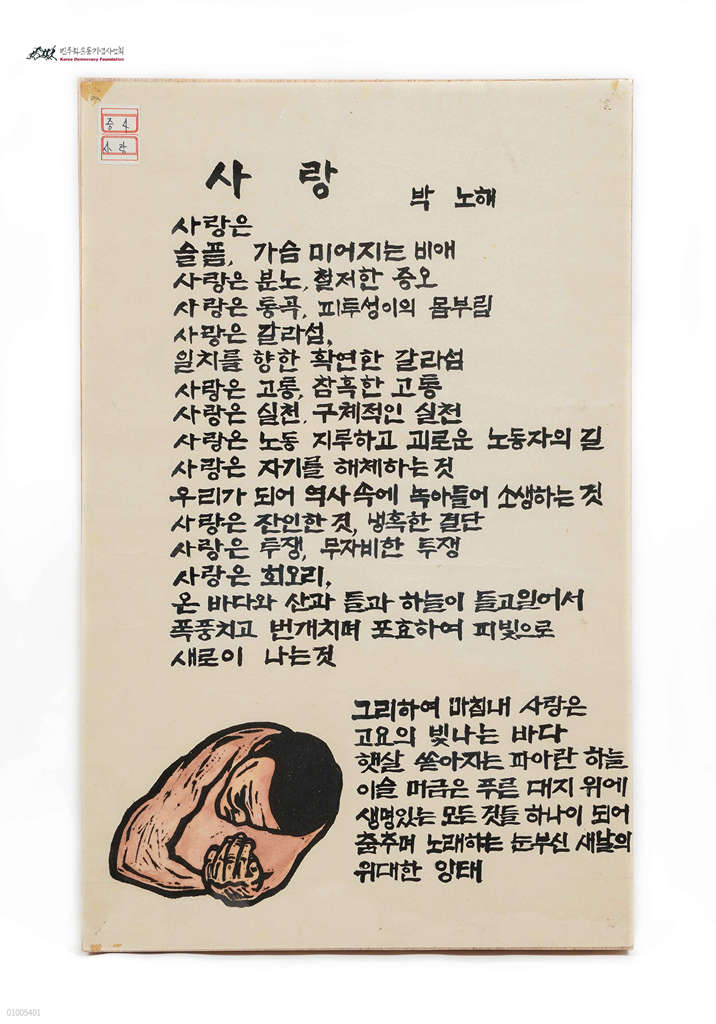 민주화운동기념사업회
Korea Democracy Foundation
증 4
사랑
사 랑
박 노해
사랑은
슬픔, 가슴 미어지는 비애
사랑은 분노, 철저한 증오
사랑은 통곡, 피투성이의 몸부림
사랑은 갈라섬,
일치를 향한 확연한 갈라섬
사랑은 고통, 참혹한 고통
사랑은 실천, 구체적인 실천
사랑은 노동 지루하고 괴로운 노동자의 길
사랑은 자기를 해체하는 것
우리가 되어 역사 속에 녹아들어 소생하는 것
사랑은 잔인한 것, 냉혹한 결단
사랑은 투쟁, 무자비한 투쟁
사랑은 회오리,
온 바다와 산과 들과 하늘이 들고일어서
폭풍치고 번개치며 포효하여 피빛으로
새로이 나는 것
그리하여 마침내 사랑은
고요의 빛나는 바다
햇살 쏟아지는 파아란 하늘
이슬 머금은 푸른 대지 위에
생명있는 모든 것들 하나이 되어
춤추며 노래하는 눈부신 새날의
위대한 잉태
01005401